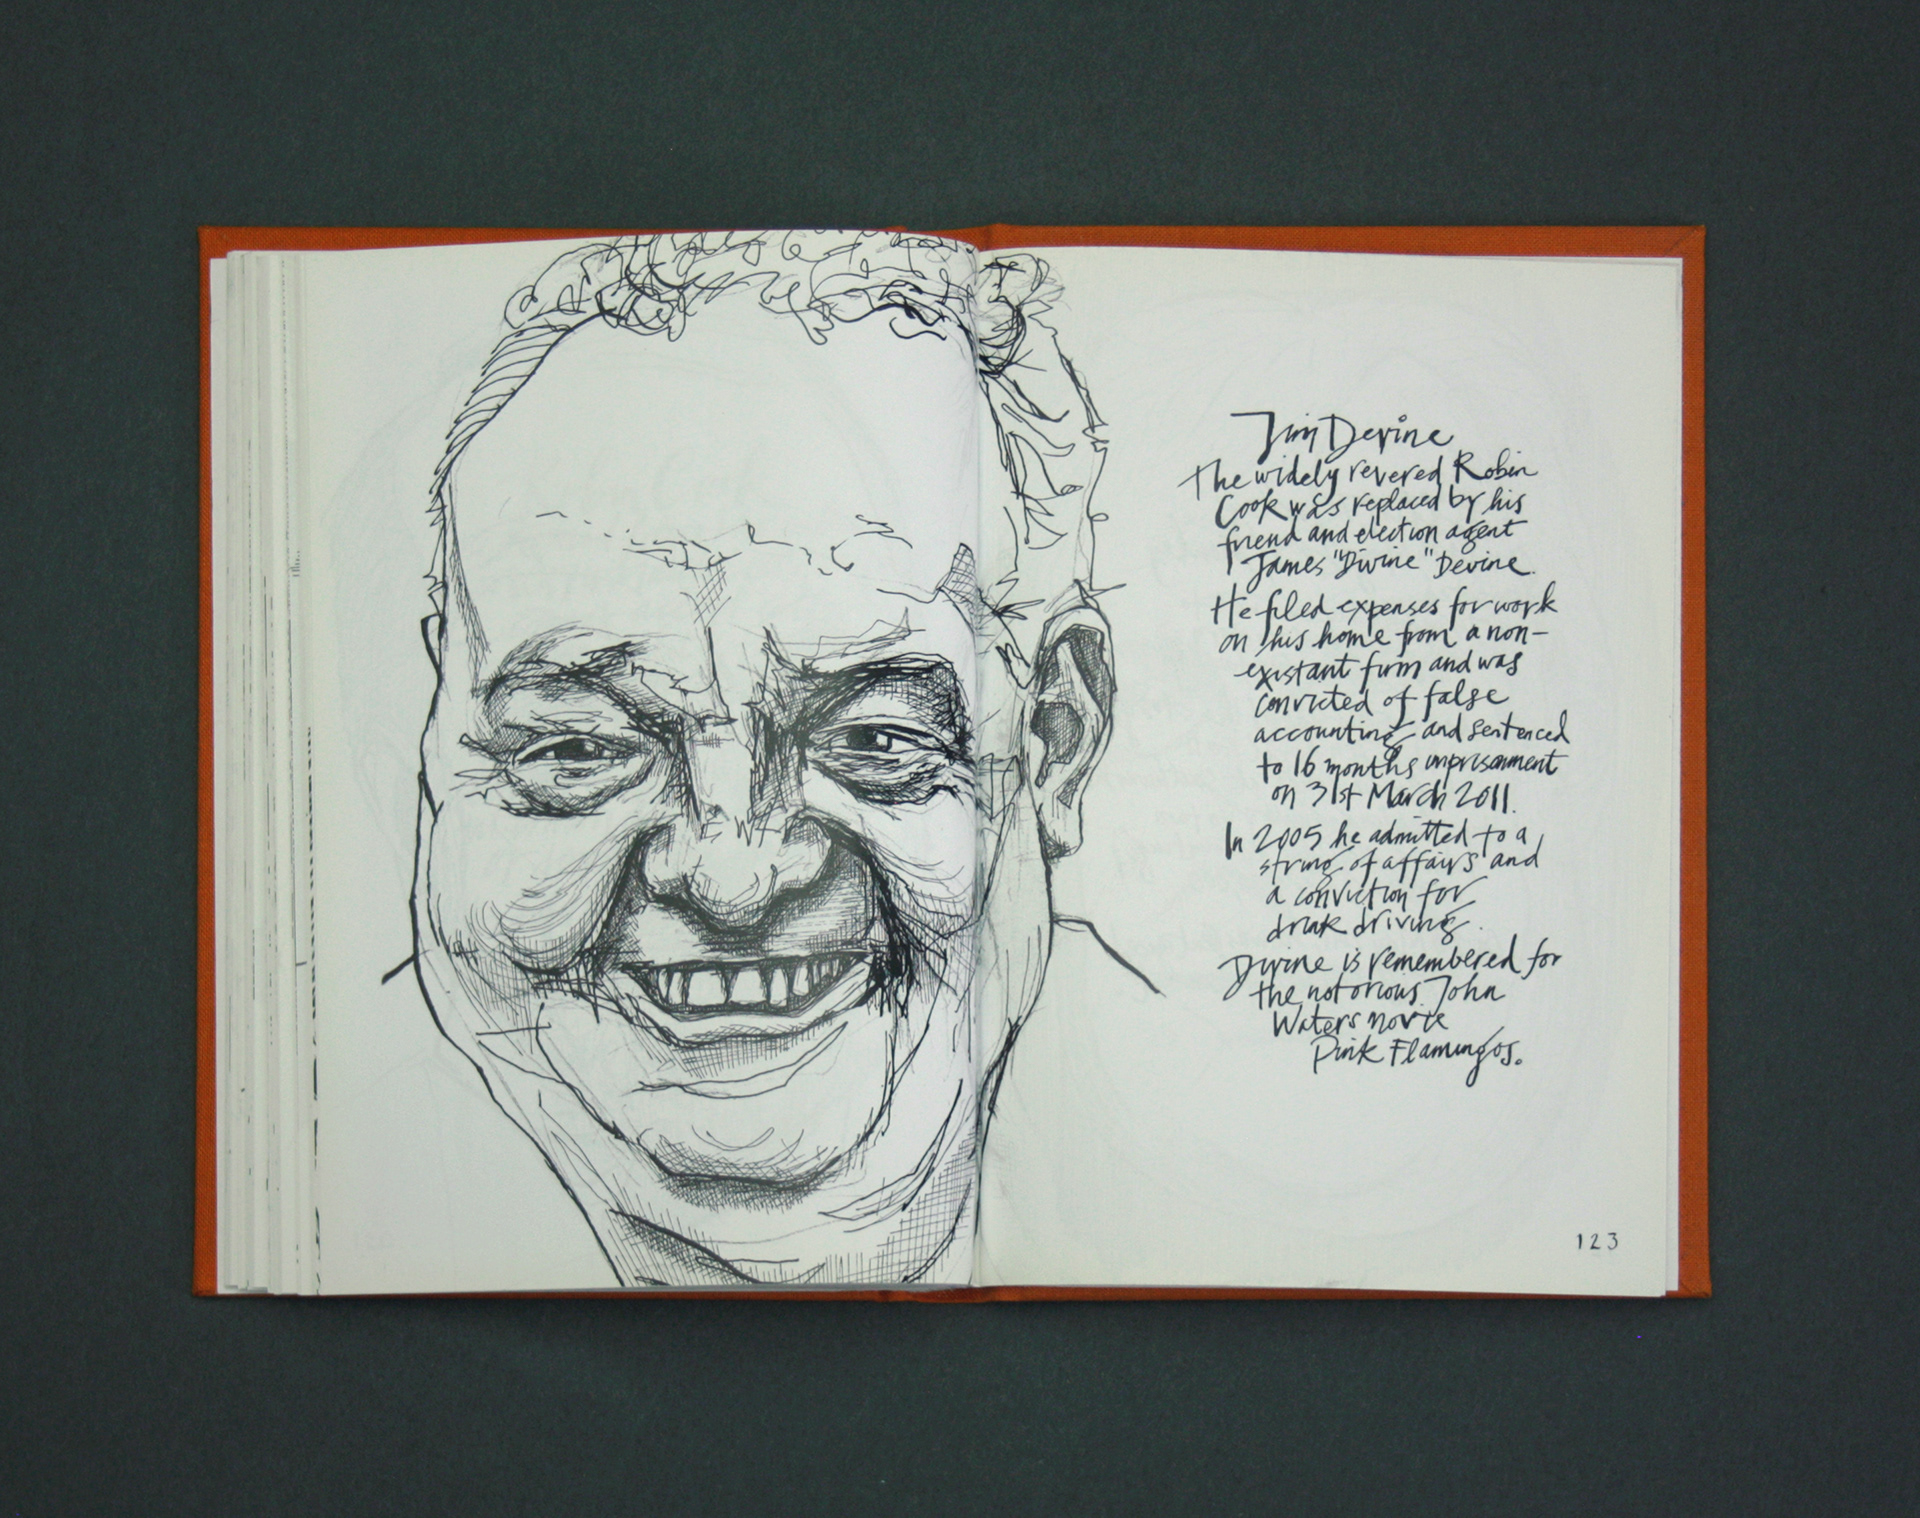 Jim Devine
The widely revered Robin
Cook was replaced by his
friend and election agent
James "Divine" Devine.
He filed expenses for work
on his home from a non-
existant firm and was
convicted of false
accounting and sentenced
to 16 months imprisonment
on 31st March 2011.
In 2005 he admitted to a
string of affairs and
a conviction for
drink driving.
Divine is remembered for
the notorious John
Waters movie
Pink Flamingos.
123